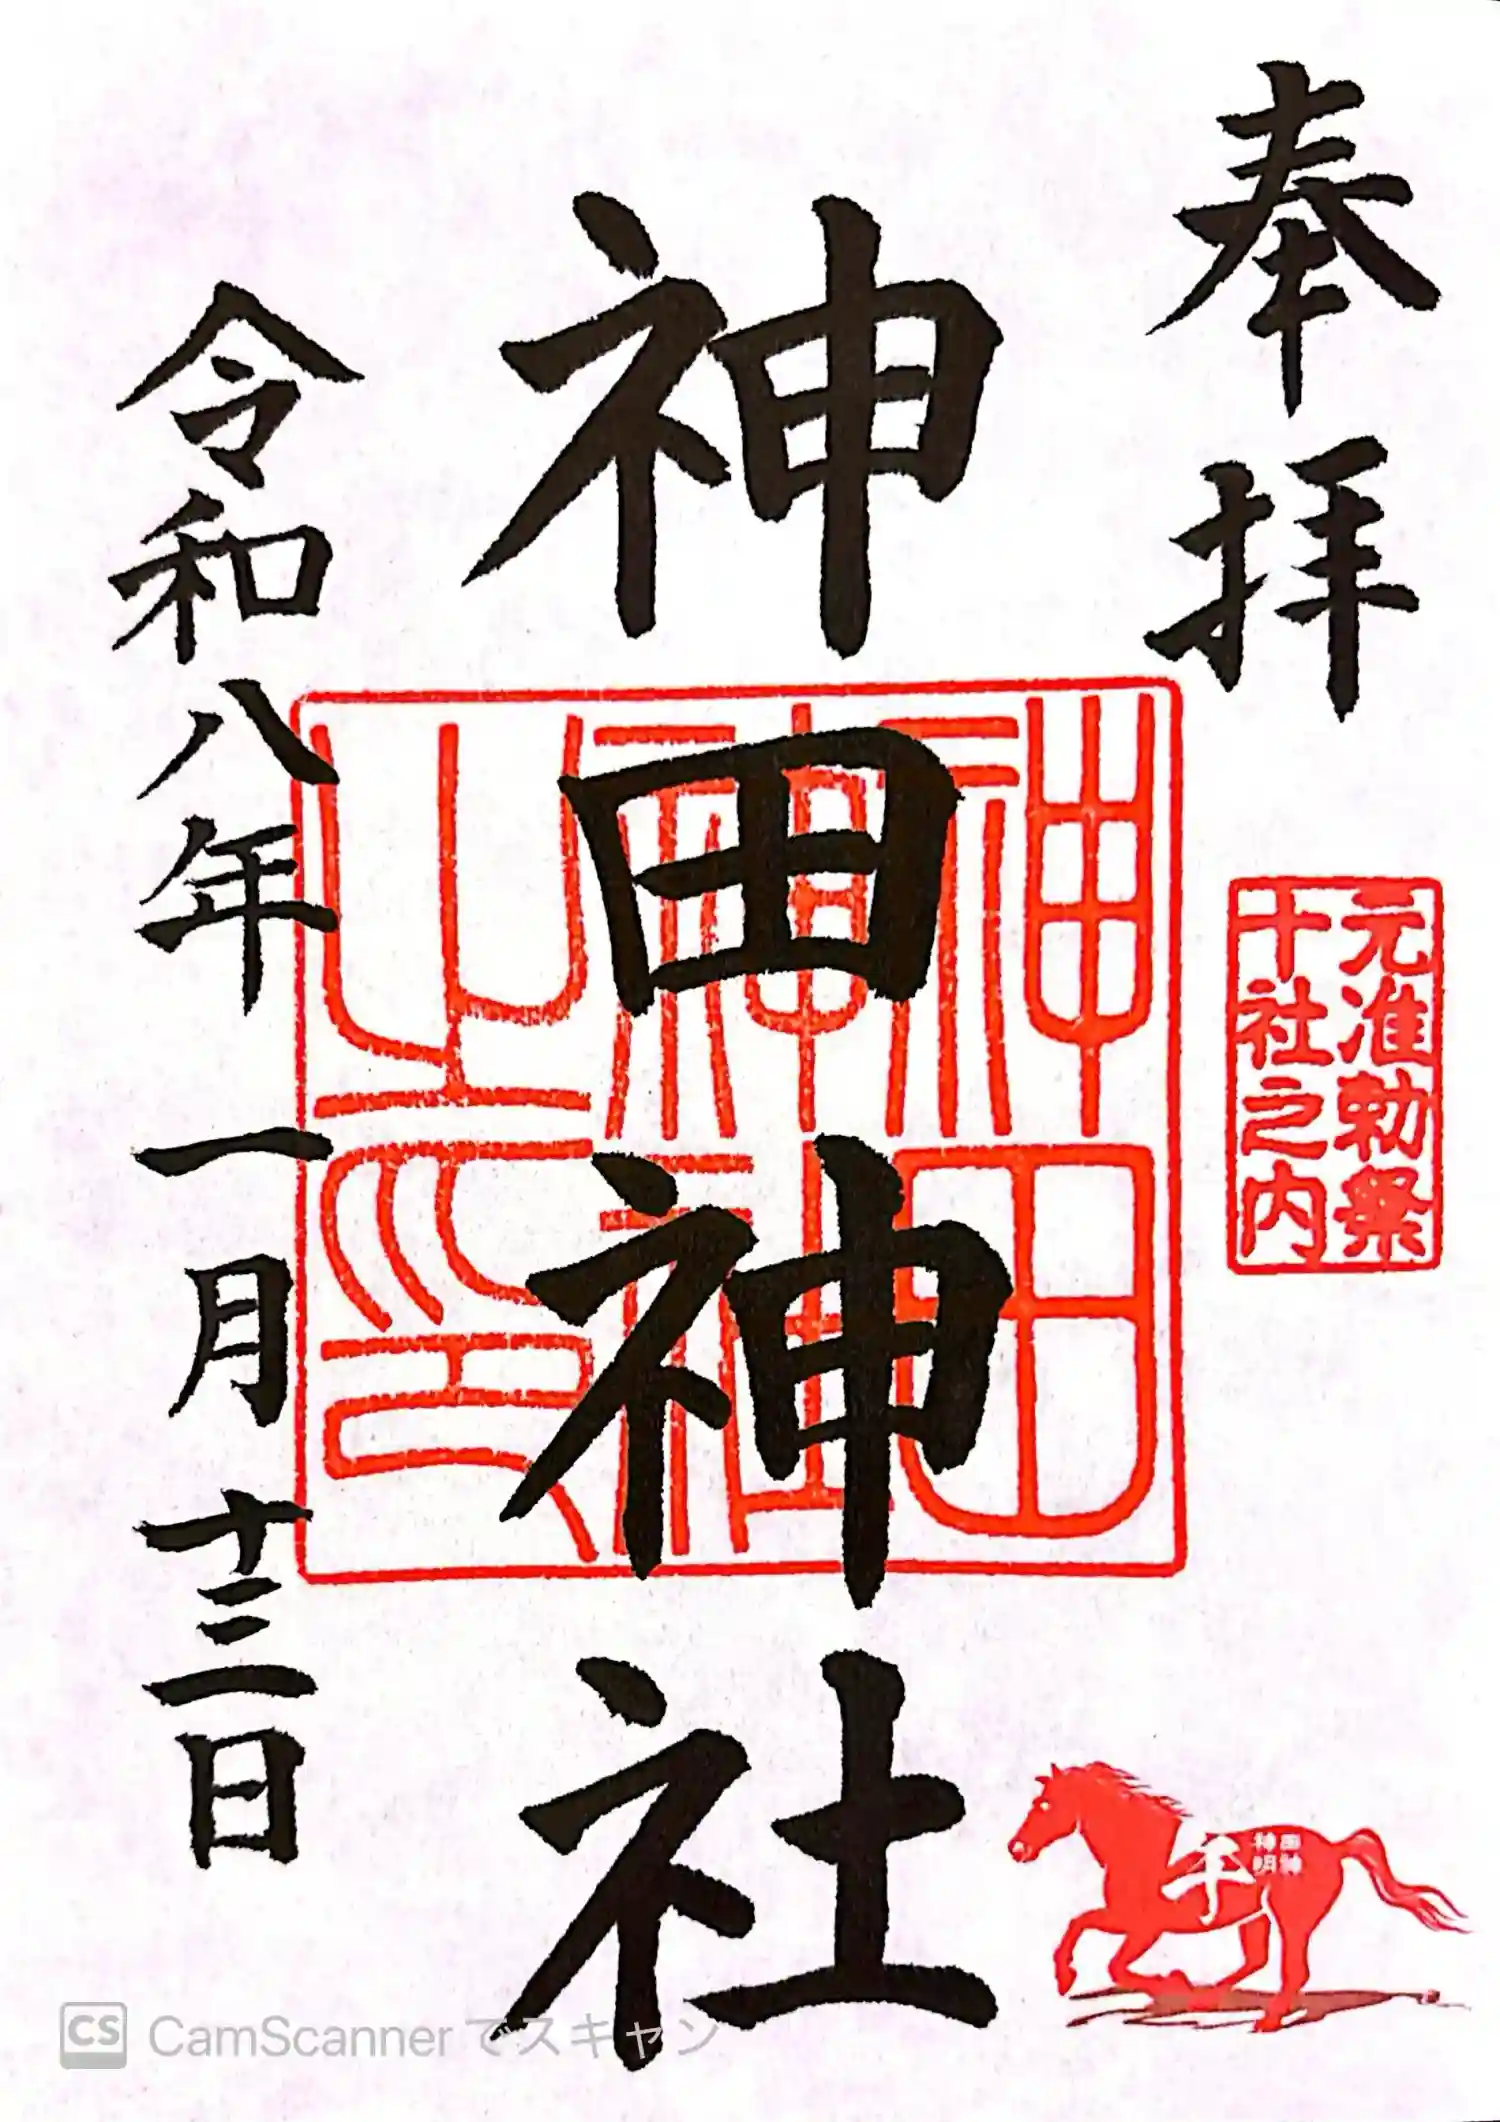 奉拝
元准勅祭
十社之内
神田神社
神田
神社
之印
令和八年一月十三日
神田
神明
午
CS CamScanner でスキャン